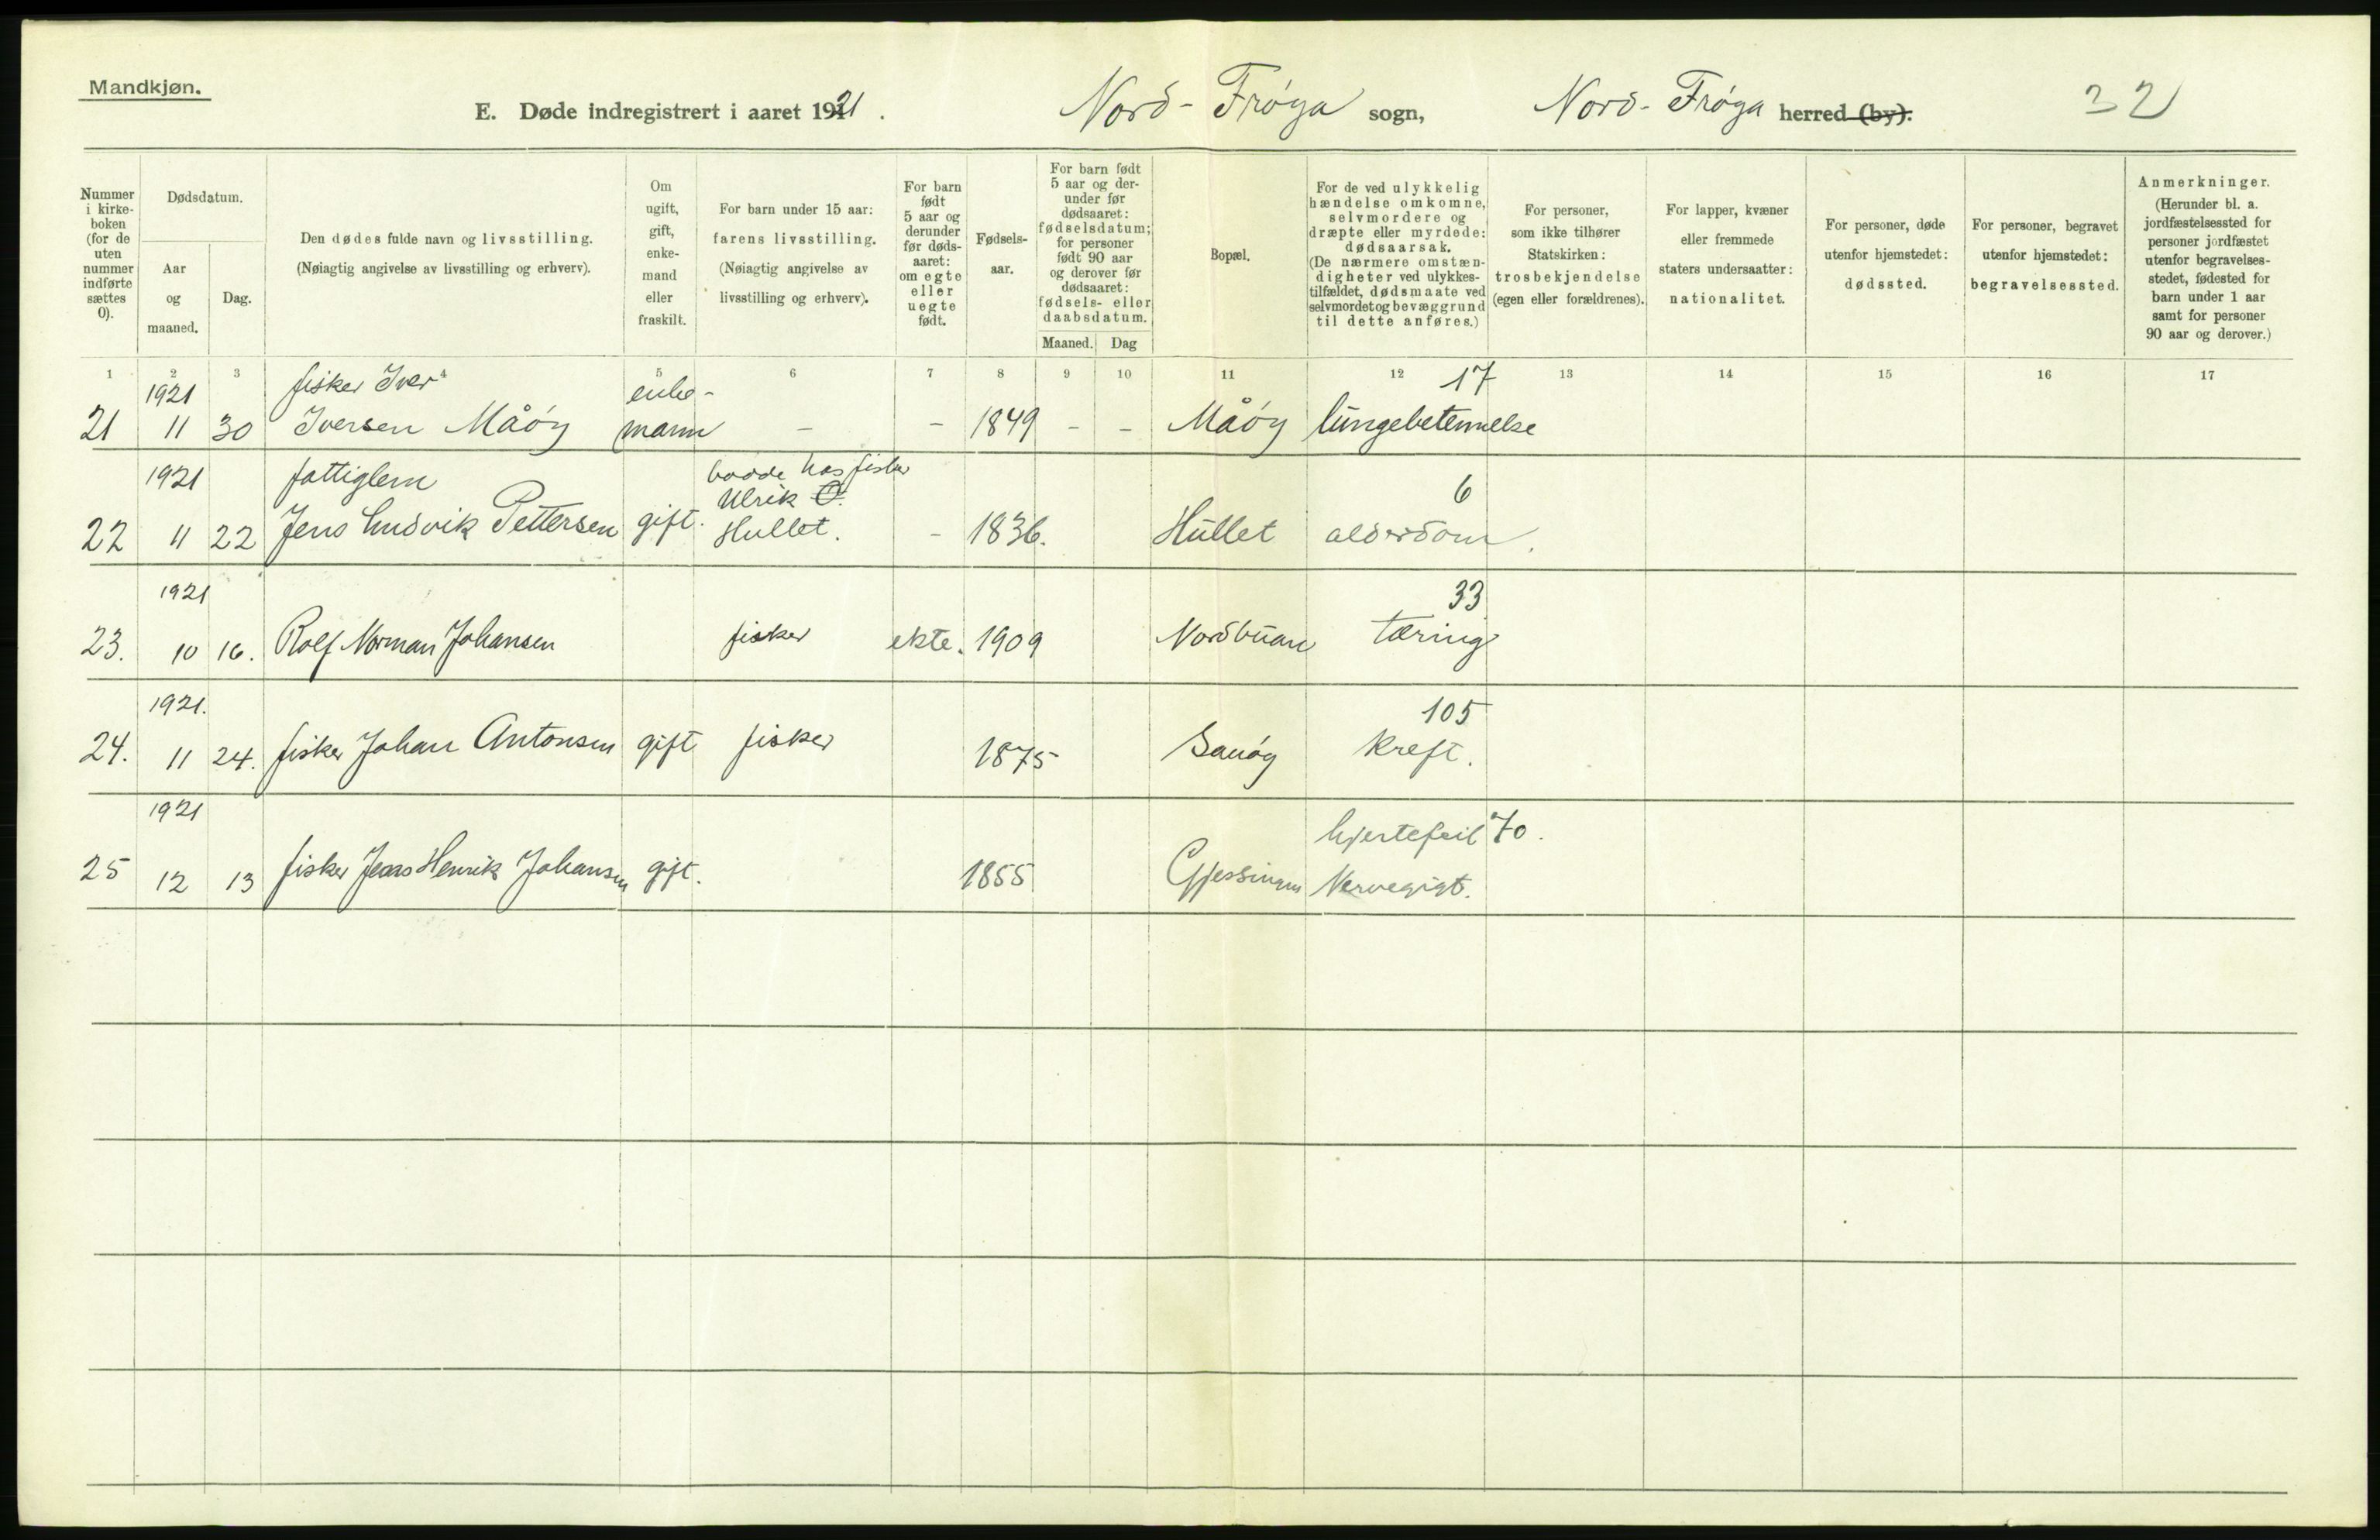 Mandkjøn.
E. Døde indregistrert i aaret 1921. Nord-Frøya sogn, Nord-Frøya herred (by). 32
Nummer i kirkeboken (for de uten nummer indførte sættes 0).
Dødsdatum.
Aar og maaned.
Dag.
Den dødes fulde navn og livsstilling.
(Nøiagtig angivelse av livsstilling og erhverv).
Om ugift, gift, enkemand eller fraskilt.
For barn under 15 aar: farens livsstilling.
(Nøiagtig angivelse av livsstilling og erhverv).
For barn født 5 aar og derunder før dødsaaret: om egte eller uegte født.
Fødselsaar.
For barn født 5 aar og derunder før dødsaaret: fødselsdatum; for personer født 90 aar og derover før dødsaaret: fødsels- eller daabsdatum.
Maaned. Dag
Bopæl.
For de ved ulykkelig hændelse omkomne, selvmordere og dræpte eller myrdede: dødsaarsak.
(De nærmere omstændigheter ved ulykkestilfældet, dødsmaate ved selvmordet og bevæggrund til dette anføres.)
For personer, som ikke tilhører Statskirken: trosbekjendelse (egen eller forældrenes).
For lapper, kvæner eller fremmede staters undersaatter: nationalitet.
For personer, døde utenfor hjemstedet: dødssted.
For personer, begravet utenfor hjemstedet: begravelsessted.
Anmerkninger.
(Herunder bl. a. jordfæstelsessted for personer jordfæstet utenfor begravelsesstedet, fødested for barn under 1 aar samt for personer 90 aar og derover.)
1 2 3 4 5 6 7 8 9 10 11 12 13 14 15 16 17
1921 fisker Iver enke- 17
21 11 30 Iversen Måøy mann - - 1849 - - Måøy lungebetennelse
1921 fattiglem bodde hos fisker
Ulrik O. 6
22 11 22 Jens Ludvik Pettersen gift. Hullet. - 1836. Hullet alderdom.
1921 33
23. 10 16. Rolf Norman Johansen fisker ekte. 1909 Nordbuan tæring
1921. 105
24. 11 24. fisker Johan Antonsen gift fisker 1875 Sauøy kreft.
1921 hjertefeil 70.
25 12 13 fisker Jens Henrik Johansen gift. 1855 Gjessingen Nervegigt.